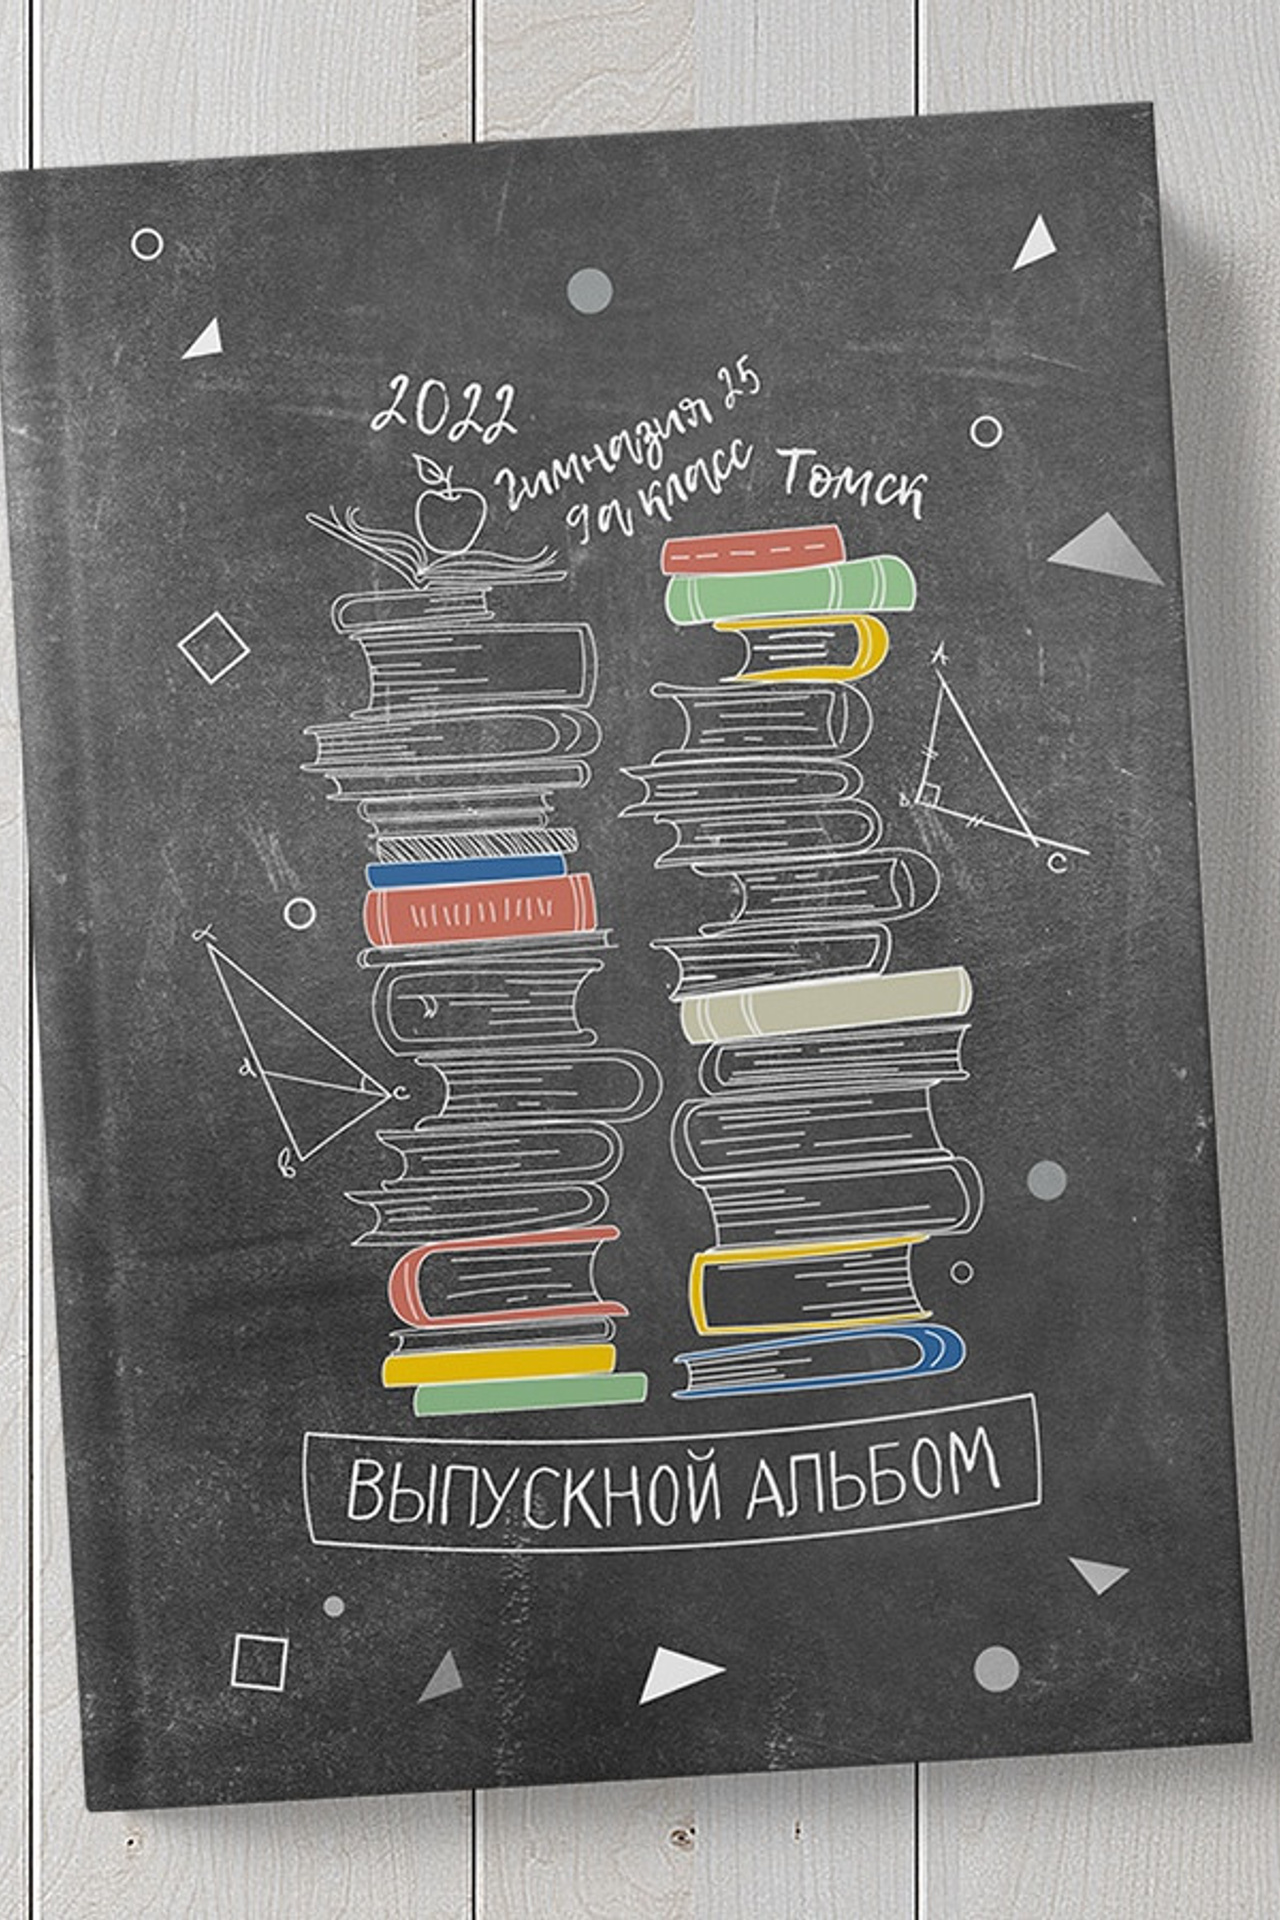 2022
гимназия 25
9а класс
Томск
A
B
C
α
d
C
B
ВЫПУСКНОЙ АЛЬБОМ